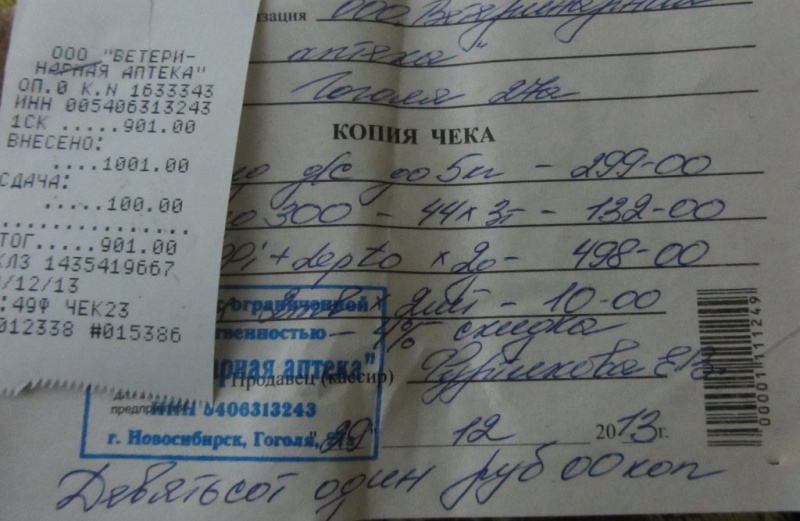 ООО "ВЕТЕРИ-
НАРНАЯ АПТЕКА"
ОП.0 К.N 1633343
ИНН 005406313243
1СК .....901.00
ВНЕСЕНО:
....1001.00
СДАЧА:
.....100.00
ТОГ.....901.00
КЛЗ 1435419667
/12/13
:49Ф ЧЕК23
012338 #015386
изация ООО "Ветеринарная
аптека"
Гоголя 27а
КОПИЯ ЧЕКА
д/с до 5кг - 299-00
300 - 44 х 3т - 132-00
Pi + Lepto х 2д - 498-00
х 2шт - 10-00
- 4% скидка
с ограниченной
твенностью
арная аптека"
Продавец (кассир)
предпр
ИНН 5406313243
г. Новосибирск, Гоголя,
"29" 12 2013г.
00001111249
Девятьсот один руб 00 коп